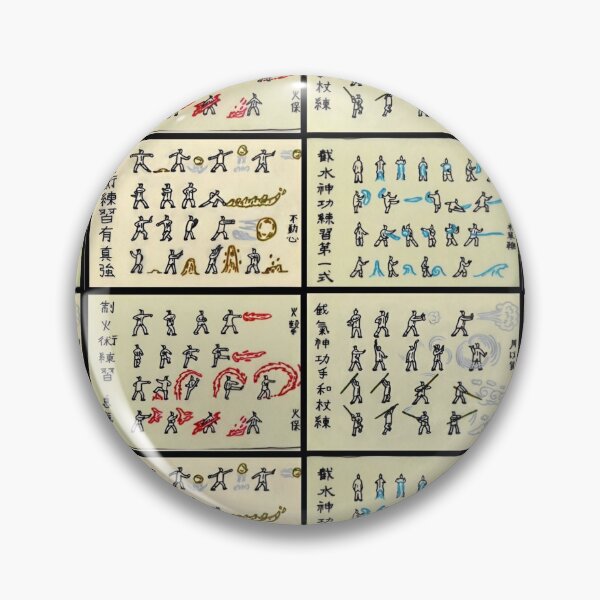 火保
杖練
術練習有真強
不動心
截水神功練習第一式
制火術練習
火擊
火保
截氣神功手和杖練
截水神功